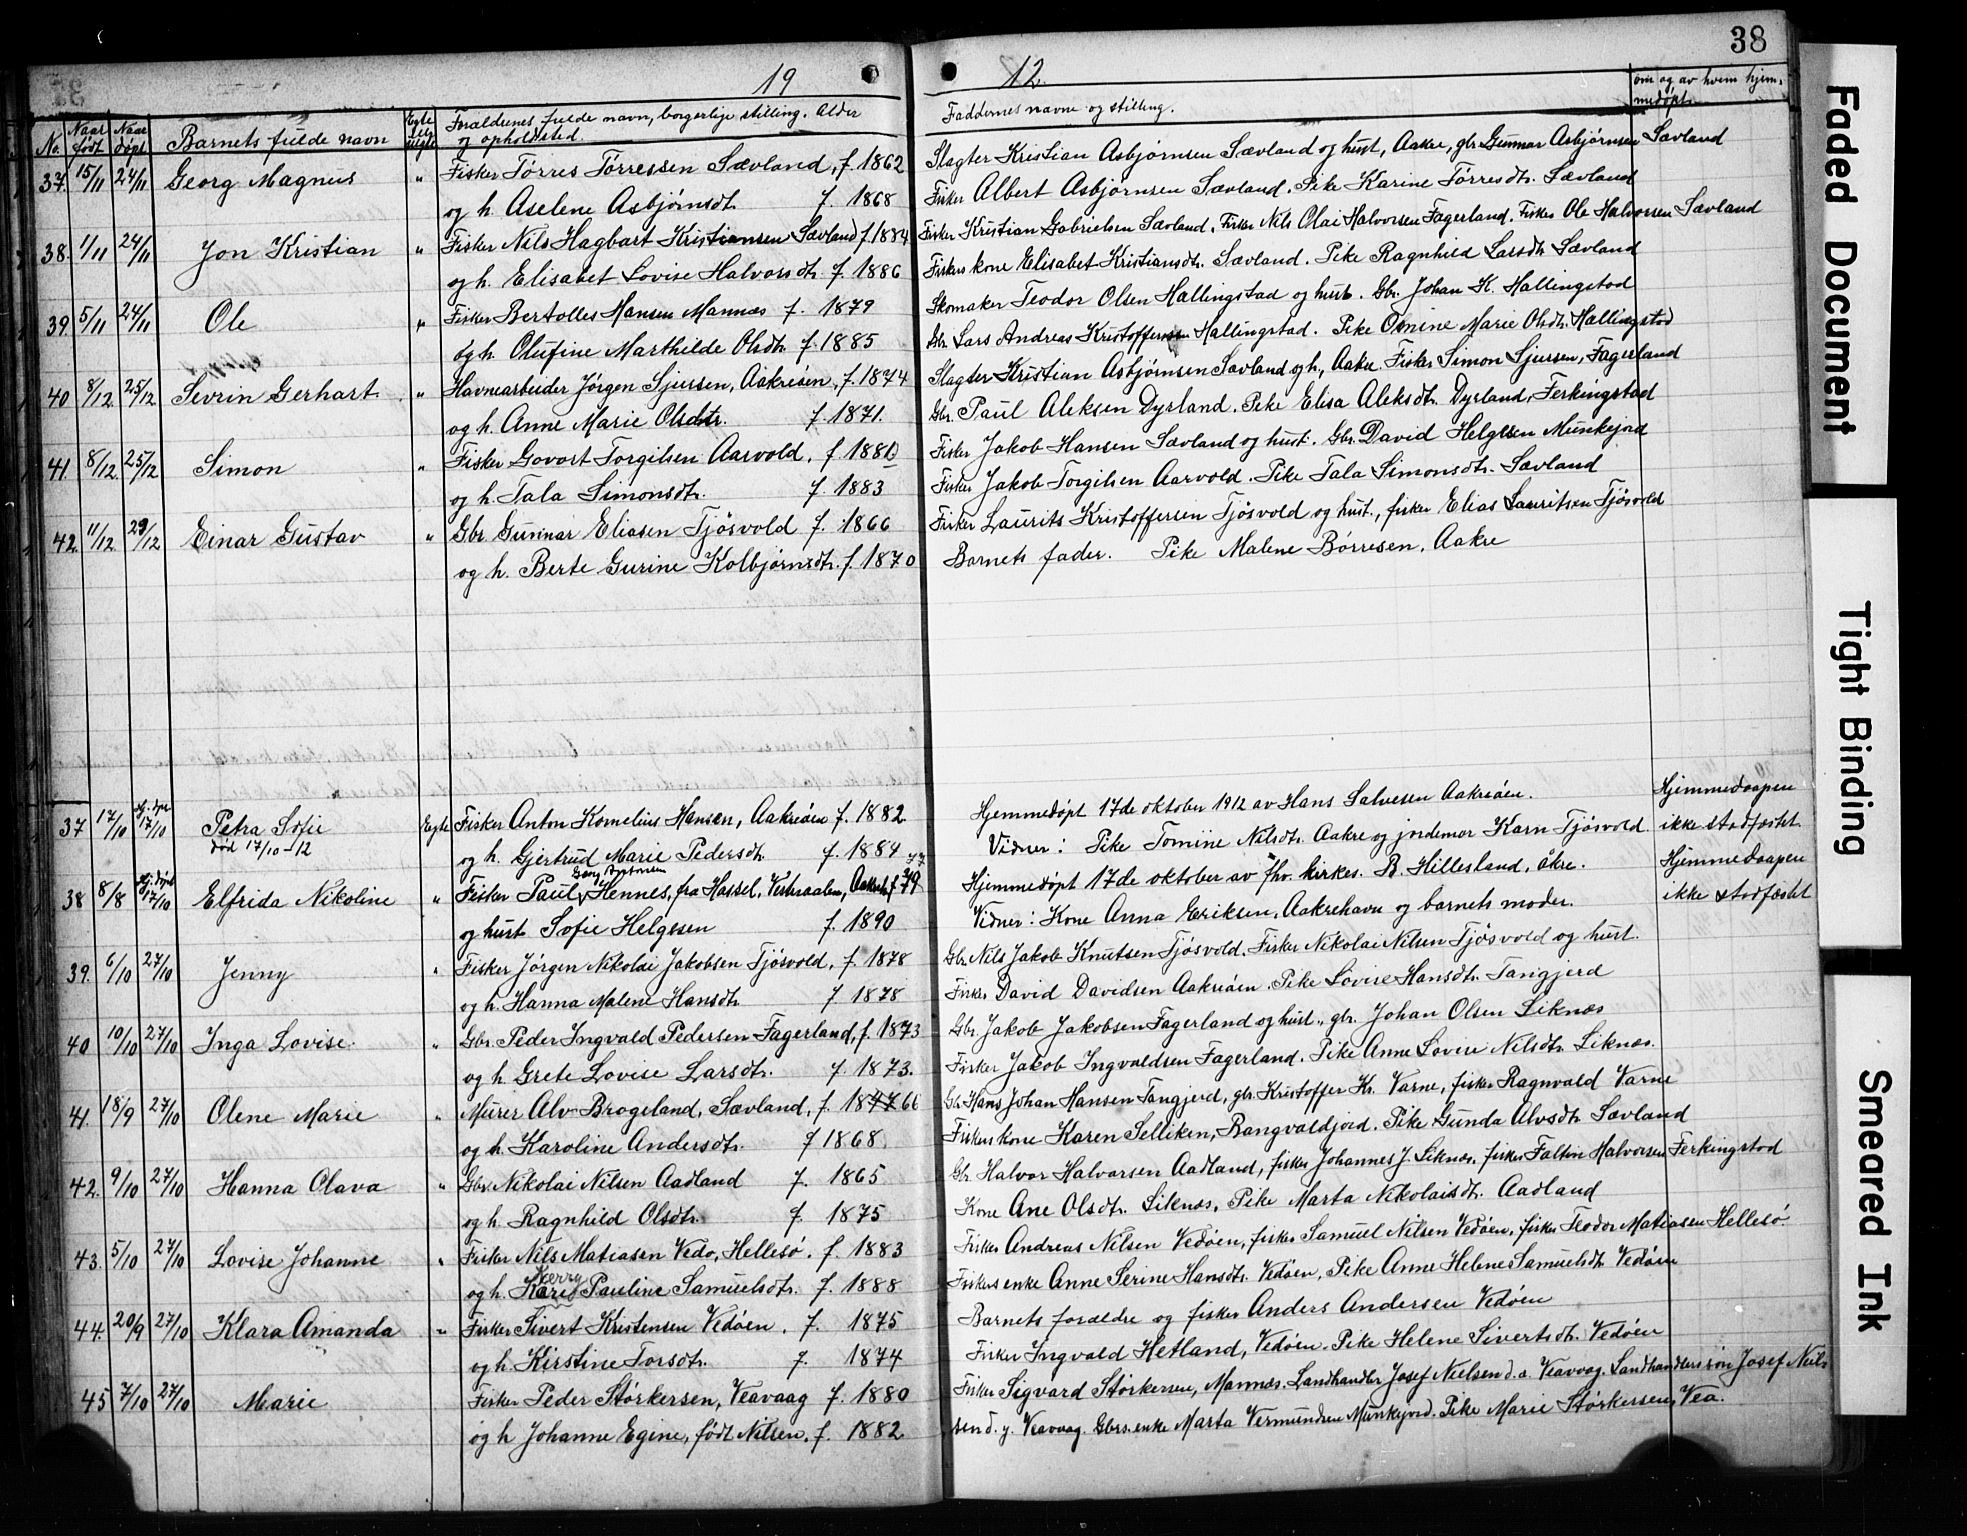 38
19 12.
No. Naar født Naar døpt Barnets fulde navn Egte eller uegte Forældrenes fulde navn, borgerlige stilling. Alder og opholdssted. Faddernes navne og stilling. om og av hvem hjemmedøpt.
37. 15/11 24/11 Georg Magnus " Fisker Tørres Tørressen Sævland, f. 1862 Slagter Kristian Asbjørnsen Sævland og hust, Aakre, gbr Gunnar Asbjørnsen Sævland
og h. Aselene Asbjørnsdt. f. 1868 Fisker Albert Asbjørnsen Sævland. Pike Karine Tørresdt. Sævland
38. 1/11 24/11 Jon Kristian " Fisker Nils Hagbart Kristiansen Sævland f. 1884 Fisker Kristian Gabrielsen Sævland, Fisker Nils Olai Halvorsen Fagerland. Fisker Ole Halvorsen Sævland
og h. Elisabet Lovise Halvorsdt. f. 1886 Fiskers kone Elisabet Kristiansdt. Sævland. Pike Ragnhild Larsdt. Sævland
39. 5/11 24/11 Ole " Fisker Bertolles Hansen Mannæs f. 1879 Skomaker Teodor Olsen Hallingstad og hust. Gbr. Johan K. Hallingstad
og h. Olufine Marthilde Olsdt. f. 1885 Gbr. Lars Andreas Kristoffersen Hallingstad. Pike Omine Marie Olsdt. Hallingstad
40 8/12 25/12 Sevrin Gerhart " Havnearbeider Jørgen Sjursen, Aakreøen, f. 1874 Slagter Kristian Asbjørnsen Sævland og h., Aakre. Fisker Simon Sjursen, Fagerland
og h. Anne Marie Olsdtr. f. 1871. Gbr. Paul Aleksen Dyrland. Pike Elisa Aleksdt. Dyrland, Ferkingstad
41. 8/12. 25/12 Simon " Fisker Govort Torgilsen Aarvold. f. 1881 Fisker Jakob Hansen Sævland og hust. Gbr. David Helgesen Munkejord
og h. Tala Simonsdt. f. 1883 Fisker Jakob Torgilsen Aarvold. Pike Tala Simonsdt. Sævland
42. 11/12. 29/12 Einar Gustav " Gbr Gunnar Eliasen Tjøsvold f. 1866 Fisker Laurits Kristoffersen Tjøsvold og hust., fisker Elias Lauritsen Tjøsvold
og h. Berte Gurine Kolbjørnsdt. f. 1870 Barnets fader. Pike Malene Børresen, Aakre
37 17/10 Hj. døpt 17/10 Petra Sofie Egte Fisker Anton Kornelius Hansen, Aakreøen f. 1882 Hjemmedøpt 17de oktober 1912 av Hans Salvesen Aakreøen. Hjemmedaapen
død 17/10-12 og h. Gjertrud Marie Pedersdt. f. 1884 Vidner: Pike Tomine Nilsdt. Aakre og jordemor Karn Tjøsvold ikke stadfæstet
38 8/8 Hj. døpt 17/10 Elfrida Nikoline " Fisker Paul Hennes, fra Hassel, Vesteraalen, f. 79 Hjemmedøpt 17de oktober av fhv. kirkes. B. Hillesland, åkre. Hjemmedaapen
og hust Sofie Helgesen f. 1890 Vidner: Kone Anna Eriksen, Aakrehavn og barnets moder. ikke stadfæstet
39. 6/10 27/10 Jenny " Fisker Jørgen Nikolai Jakobsen Tjøsvold, f. 1878 Gbr Nils Jakob Knutsen Tjøsvold. Fisker Nikolai Nilsen Tjøsvold og hust.
og h. Hanna Malene Hansdt. f 1878 Fisker David Davidsen Aakreøen. Pike Lovise Hansdt. Tangjerd
40 10/10 27/10 Inga Lovise. " Gbr. Peder Ingvald Pedersen Fagerland, f. 1873 Gbr. Jakob Jakobsen Fagerland og hust., gbr. Johan Olsen Liknæs
og h. Grete Lovise Larsdt. f 1873. Fisker Jakob Ingvaldsen Fagerland. Pike Anne Lovise Nilsdt. Liknæs.
41. 18/9 27/10 Olene Marie " Murer Alv Brogeland, Sævland, f. 1877 66 Gbr Hans Johan Hansen Tangjerd, gbr. Kristoffer Kr. Varne, fisker Ragnvald Varne
og h. Karoline Andersdt. f 1868 Fiskers kone Karen Selliken, Rangvaldjord. Pike Gunda Alvsdt. Sævland
42. 9/10 27/10 Hanna Olava " Gbr Nikolai Nilsen Aadland f. 1865 Gbr Halvor Halvorsen Aadland, fisker Johannes J. Liknæs, fisker Faltin Halvorsen Ferkingstad
og h. Ragnhild Olsdt. f. 1875 Kone Ane Olsdt. Liknæs, Pike Marta Nikolaisdt. Aadland
43. 5/10 27/10 Lovise Johanne " Fisker Nils Matiasen Vedø, Hellesø. f. 1883 Fisker Andreas Nilsen Vedøen, fisker Samuel Nilsen Vedøen, fisker Teodor Matiasen Hellesø
og h. Kari Pauline Samuelsdt. f. 1888 Fiskers enke Anne Serine Hansdt. Vedøen, Pike Anne Helene Samuelsdt. Vedøen
44. 20/9 27/10 Klara Amanda " Fisker Sivert Kristensen Vedøen. f. 1875 Barnets forældre og fisker Anders Andersen Vedøen
og h. Kirstine Torsdt. f. 1874 Fisker Ingvald Hetland, Vedøen. Pike Helene Sivertsdt. Vedøen
45 7/10 27/10 Marie Fisker Peder Størkersen, Veavaag f. 1880 Fisker Sigvard Størkersen, Mannæs. Landhandler Josef Nielsen d. æ. Veavaag. Landhandlers søn Josef Niel-
og h Johanne Egine, født Nilsen. f. 1882 sen d. y. Veavaag. Gbrs. enke Marta Vermundsen Munkejord. Pike Marie Størkersen, Vea.
Faded Document
Tight Binding
Smeared Ink